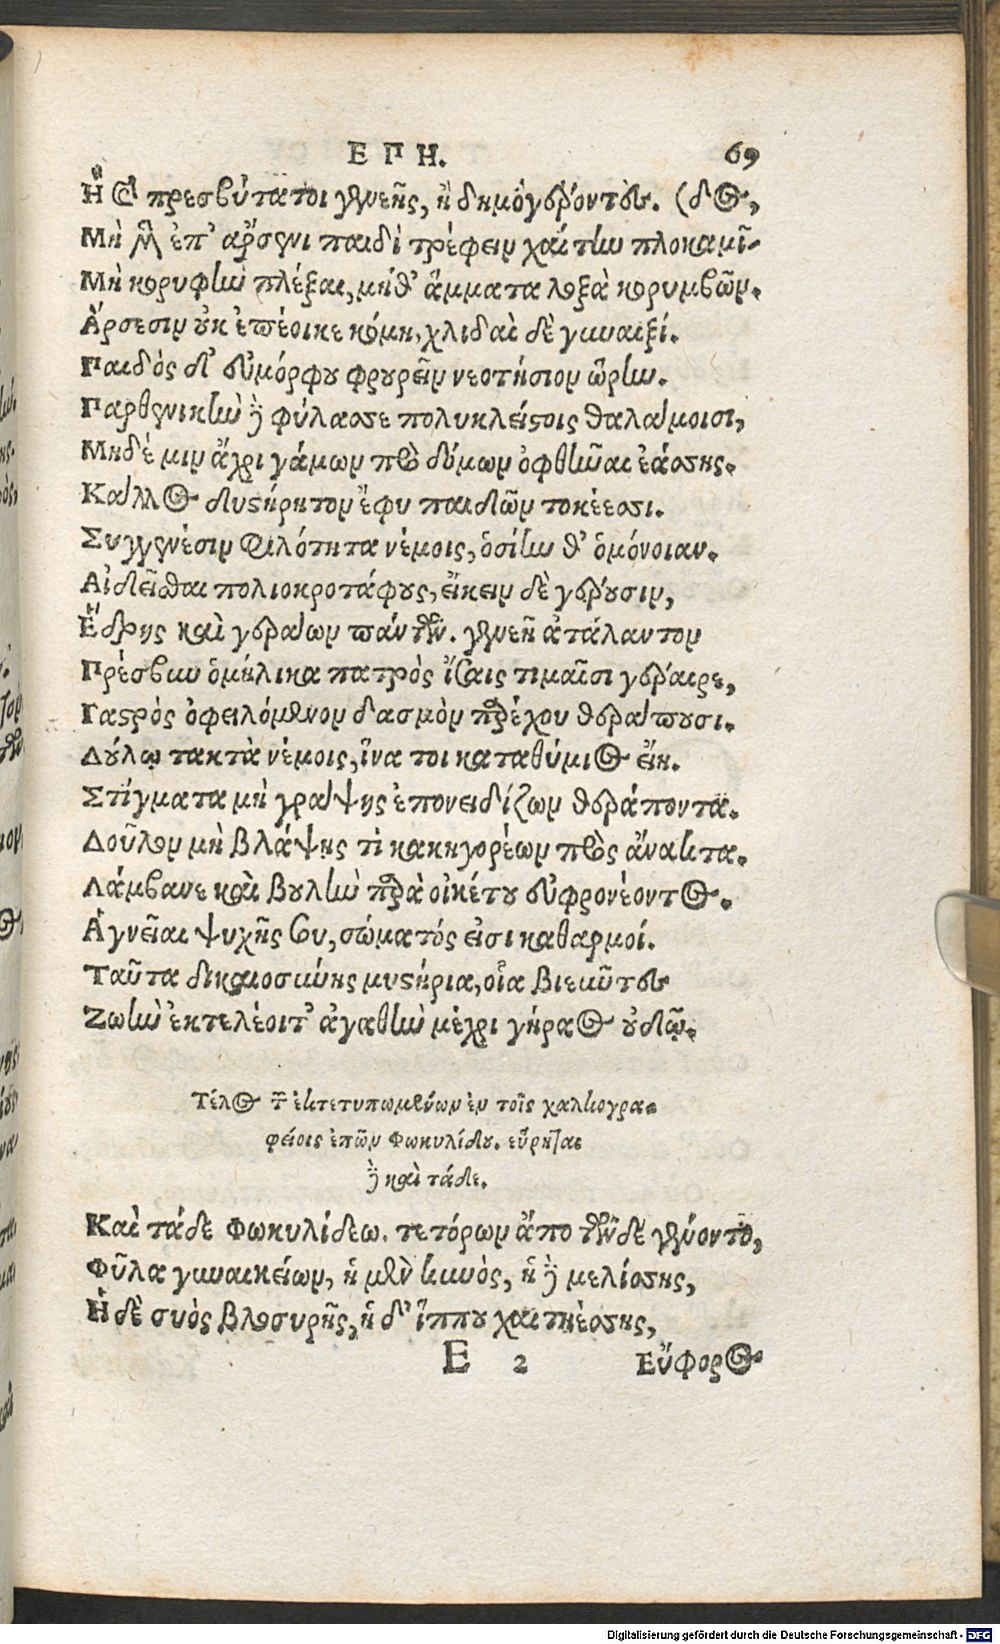 ΕΠΗ. 69
Ἢ καὶ πρεσβύτατοι γενεῆς, ἢ δημογέροντες. (δος,
Μὴ μὲν ἐπ' ἄρσενι παιδὶ τρέφειν χαίτην πλοκαμῖ-
Μὴ κορυφὴν πλέξαι, μήθ' ἅμματα λοξὰ κορυμβῶν.
Ἄρσεσιν οὐκ ἐπέοικε κόμη, χλιδαὶ δὲ γυναιξί.
Παιδὸς δ' εὐμόρφου φρουρεῖν νεοτήσιον ὥρην.
Παρθενικὴν δὲ φύλασσε πολυκλείστοις θαλάμοισι,
Μηδέ μιν ἄχρι γάμων πρὸ δόμων ὀφθῆναι ἐάσῃς.
Κάλλος δυστήρητον ἔφυ παιδῶν τοκέεσσι.
Συγγενέσιν φιλότητα νέμοις, ὁσίην θ' ὁμόνοιαν.
Αἰδεῖσθαι πολιοκροτάφους, εἴκειν δὲ γέρουσιν,
Ἕδρης καὶ γεράων πάντων. γενεῇ ἀτάλαντον
Πρέσβυν ὁμήλικα πατρὸς ἴσαις τιμαῖσι γέραιρε,
Γαστρὸς ὀφειλόμενον δασμὸν παρέχου θεράπουσι.
Δούλῳ τακτὰ νέμοις, ἵνα τοι καταθύμιος εἴη.
Στίγματα μὴ γράψῃς ἐπονειδίζων θεράποντα.
Δοῦλον μὴ βλάψῃς τὶ κακηγορέων πρὸς ἄνακτα.
Λάμβανε καὶ βουλὴν παρὰ οἰκέτου εὐφρονέοντος.
Ἁγνεῖαι ψυχῆς οὐ, σώματός εἰσι καθαρμοί.
Ταῦτα δικαιοσύνης μυστήρια, οἷα βιεῦντες
Ζωὴν ἐκτελέοιτ' ἀγαθὴν μέχρι γήραος οὐδῶ.
Τέλος τῶν ἐκτετυπωμένων ἐν τοῖς χαλκογρα-
φείοις ἐπῶν Φωκυλίδου. εὕρηται
δὲ καὶ τάδε.
Καὶ τάδε Φωκυλίδεω. τετόρων ἄπο τῶνδε γένοντο,
Φῦλα γυναικείων, ἡ μὲν κυνὸς, ἡ δὲ μελίσσης,
Ἡ δὲ συὸς βλοσυρῆς, ἡ δ' ἵππου χαιτηέσσης,
E 2 Εὔφορος
Digitalisierung gefördert durch die Deutsche Forschungsgemeinschaft - DFG